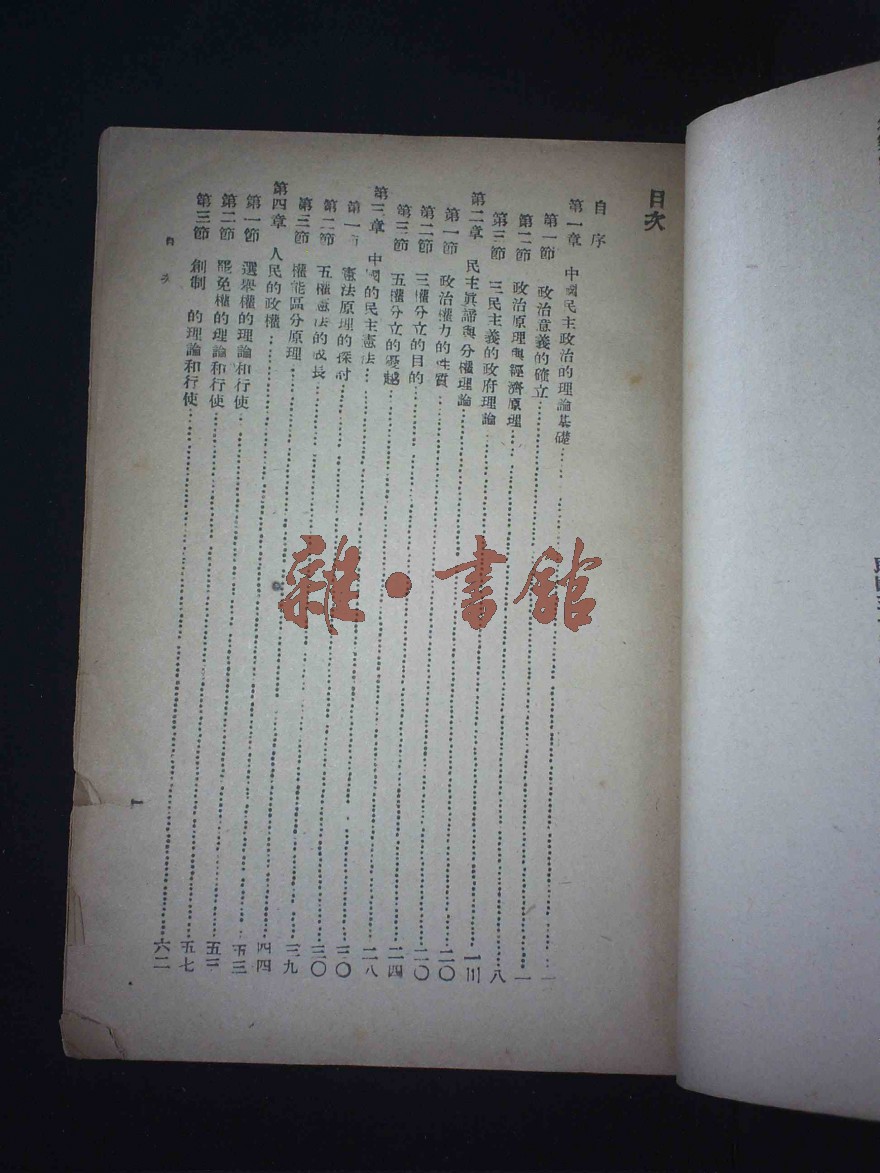 目次
自序
第一章 中國民主政治的理論基礎……一
第一節 政治意義的確立……一
第二節 政治原理與經濟原理……八
第三節 三民主義的政府理論……一三
第二章 民主真諦與分權理論……二〇
第一節 政治權力的性質……二〇
第二節 三權分立的目的……二四
第三節 五權分立的優越……二八
第三章 中國的民主憲法……三〇
第一節 憲法原理的探討……三〇
第二節 五權憲法的成長……三九
第三節 權能區分原理……四四
第四章 人民的政權……五三
第一節 選舉權的理論和行使……五三
第二節 罷免權的理論和行使……五七
第三節 創制 的理論和行使……六二
目次
一
雜·書館